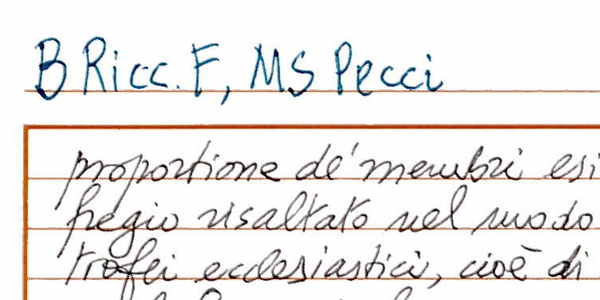 B Ricc. F, MS Pecci
proportione de' membri esi
fregio risaltato nel modo
trofei ecclesiastici, cioè di